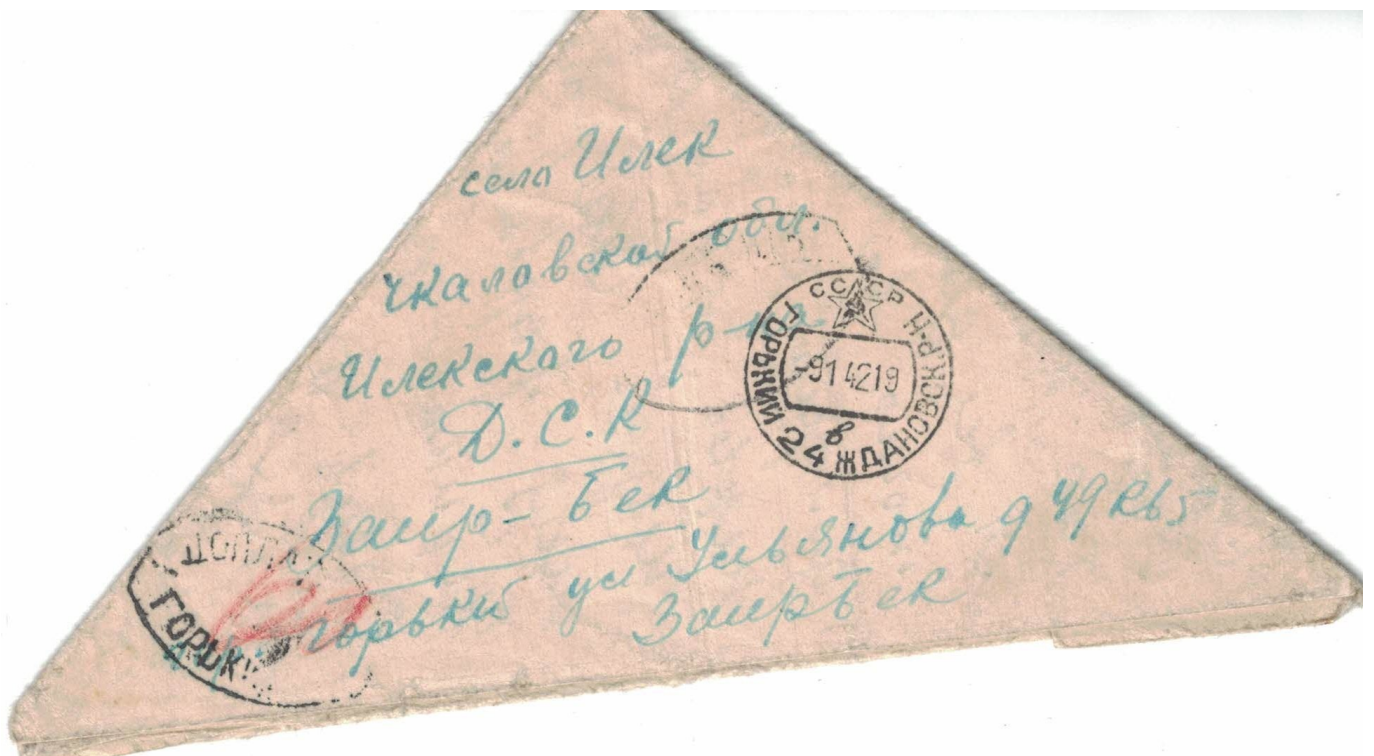 село Илек
Чкаловской обл.
Илекского р-на
Д.С.К
Заир-Бек
Горький ул Ульянова д 49 кв 5
ЗаирБек
СССР
ГОРЬКИЙ 24 ЖДАНОВСК.Р-Н
-9 1 42 19
в
ДОПЛ
ГОРЬК